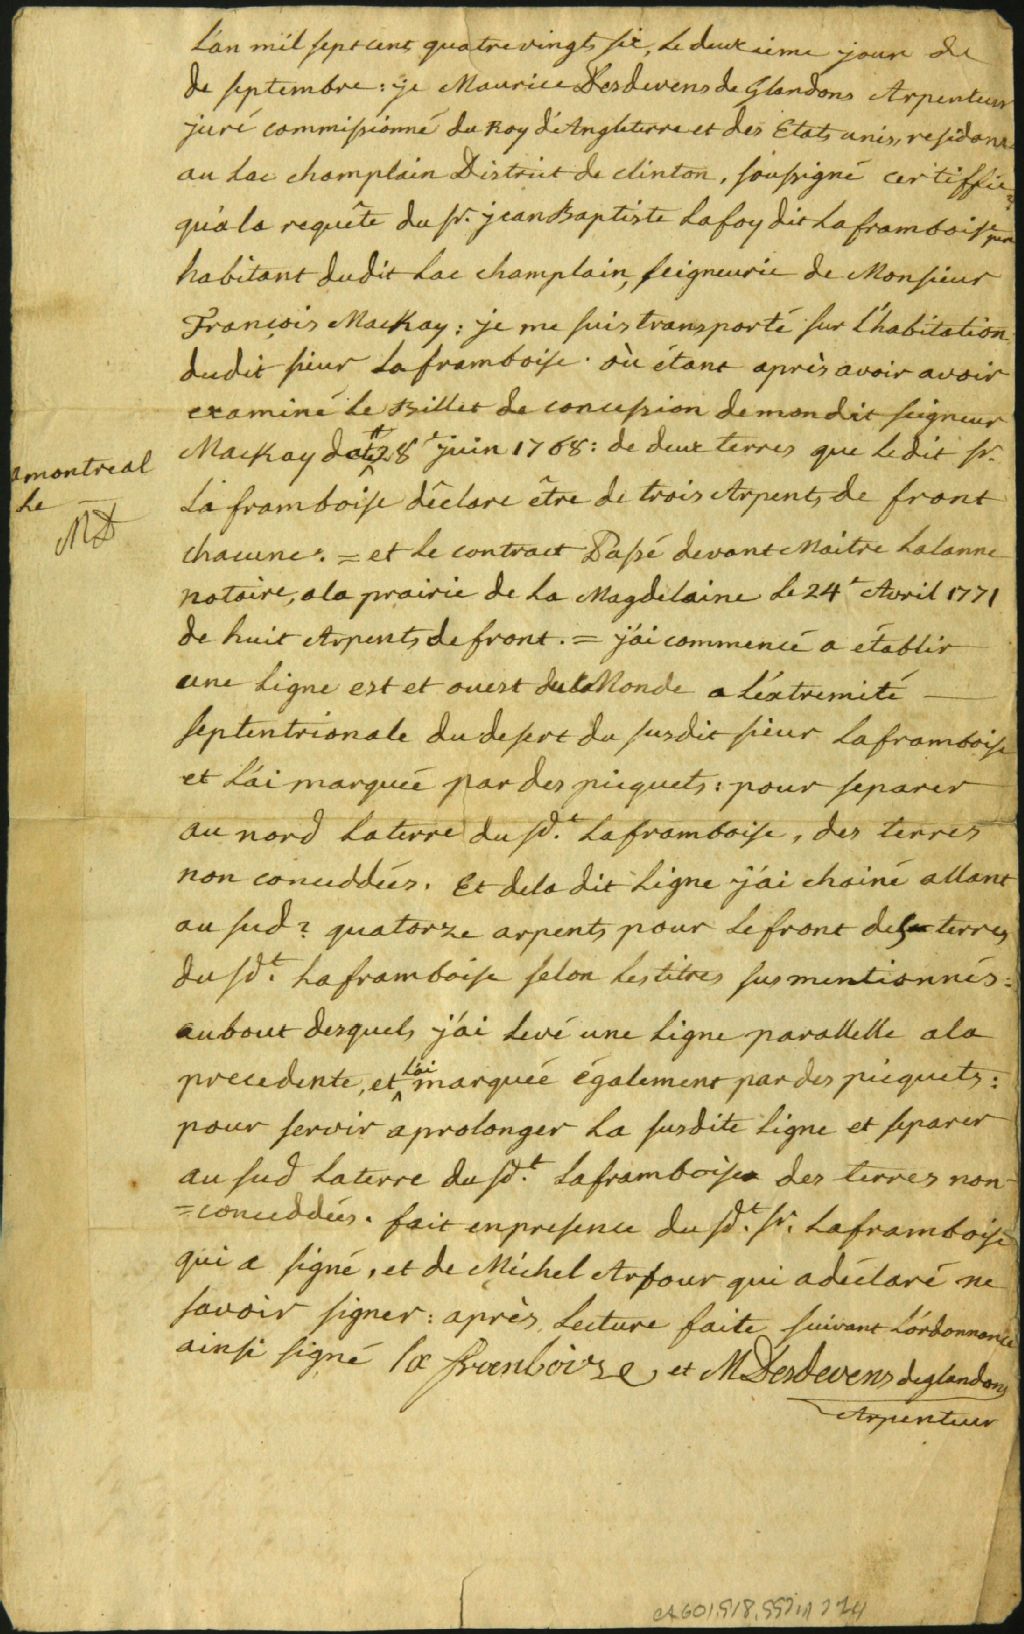 L'an mil sept cent quatre vingt six, Le deuxieme jour de
de septembre : je Maurice Desdevens de Glandons Arpenteur
juré commissionné du Roy d'Angleterre et des Etats unis, residant
au Lac champlain District de clinton, soussigné certiffie
qu'a la requête du sr. jean Baptiste Lafoy dit Laframboise
habitant dudit Lac champlain, seigneurie de Monsieur
François MacKay : je me suis transporté sur L'habitation
dudit sieur Laframboise. où étant après avoir avoir
examiné Le Billet de concession de mondit seigneur
MacKay 28t juin 1768 : de deux terres que Ledit sr.
a montreal
Le
MD
La framboise déclare être de trois Arpents de front
chacune. = et Le contract Passé devant Maitre Lalanne
notaire, a la prairie de La Magdelaine Le 24t Avril 1771
de huit Arpents de front. = j'ai commencé a établir
une Ligne est et ouest du Monde a L'éxtremité
septentrionale du desert du susdit sieur Laframboise
et L'ai marquée par des picquets : pour separer
au nord La terre du sd.t Laframboise, des terres
non conceddées. Et de la dit Ligne j'ai chainé allant
au sud ? quatorze arpents pour Le front de terres
du sd.t Laframboise selon Les titres sus mentionnés :
au bout desquels j'ai Levé une Ligne parallelle a la
precedente, et L'ai marquée également par des picquets :
pour servir a prolonger La susdite Ligne et separer
au sud La terre du sd.t Laframboise des terres non
=conceddées. fait en presence du sd.t sr. Laframboise
qui a signé, et de Michel Arfour qui a déclaré ne
savoir signer : après Lecture faite suivant L'ordonnance
ainsi signé la franboize et M Desdevens deglandons
Arpenteur